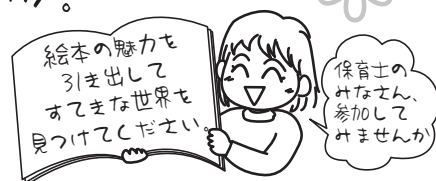 絵本の魅力を
引き出して
すてきな世界を
見つけてください。
保育士の
みなさん、
参加して
みませんか